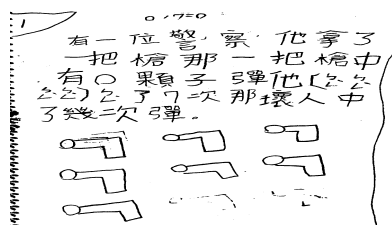 1
0÷7=0
有一位警察他拿了
一把槍那一把槍中
有0顆子彈他(ㄠㄠ
ㄠㄠ)ㄠ了7次那壞人中
了幾次彈。